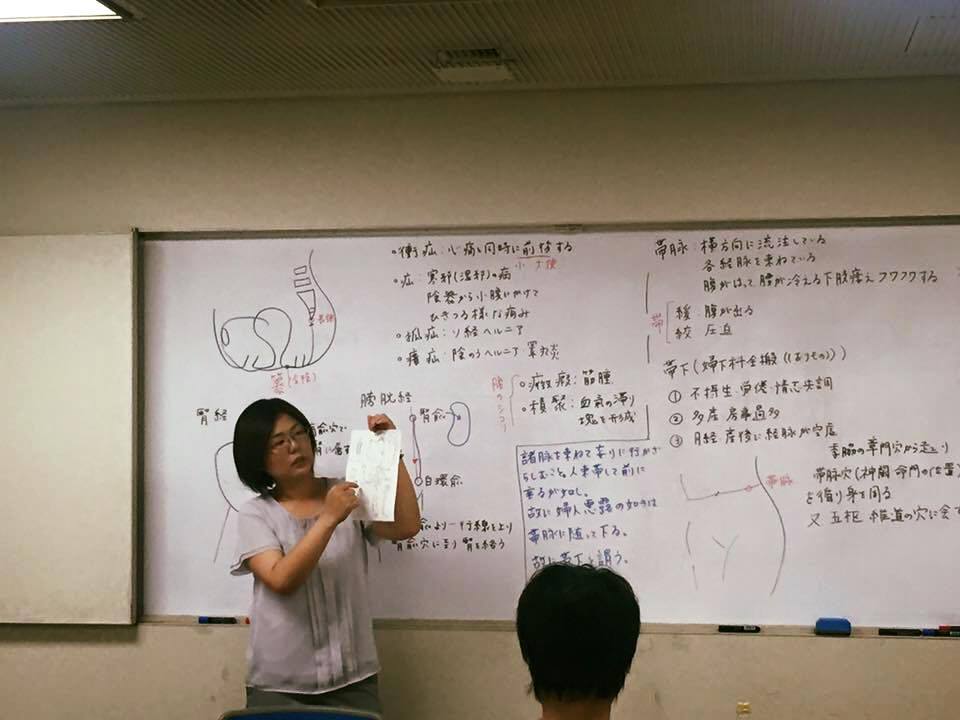 長強
篡(会陰)
腎経
膀胱経
腎兪
白環兪
・衝疝:心痛と同時に前後する
小 大便
・疝:寒邪(湿邪)の病
陰器から小腹にかけて
ひきつる様な痛み
・狐疝:ソ経ヘルニア
・㿉疝:陰のうヘルニア 睾丸炎
腸のシコリ
・瘕:筋腫
・積聚:血気の滞り
塊を形成
諸脈を束ねて
人束帯して前に
垂るが如し。
故に婦人悪露の如きは
帯脈に随って下る。
故に帯下と謂う。
帯脈:横方向に流注している
各経脈を束ねている
腹がはって腰が冷える下肢痿えフワフワする
帯
緩 腹が出る
絞 圧迫
帯下(婦下科全搬((おりもの))
① 不摂生・労倦・情志失調
② 多産 房事過多
③ 月経 産後に経脈が空虚
帯脈
季脇の章門穴から走
帯脈穴(神闕 命門の位置)
を循り身を周る
又 五枢 維道の穴に会す